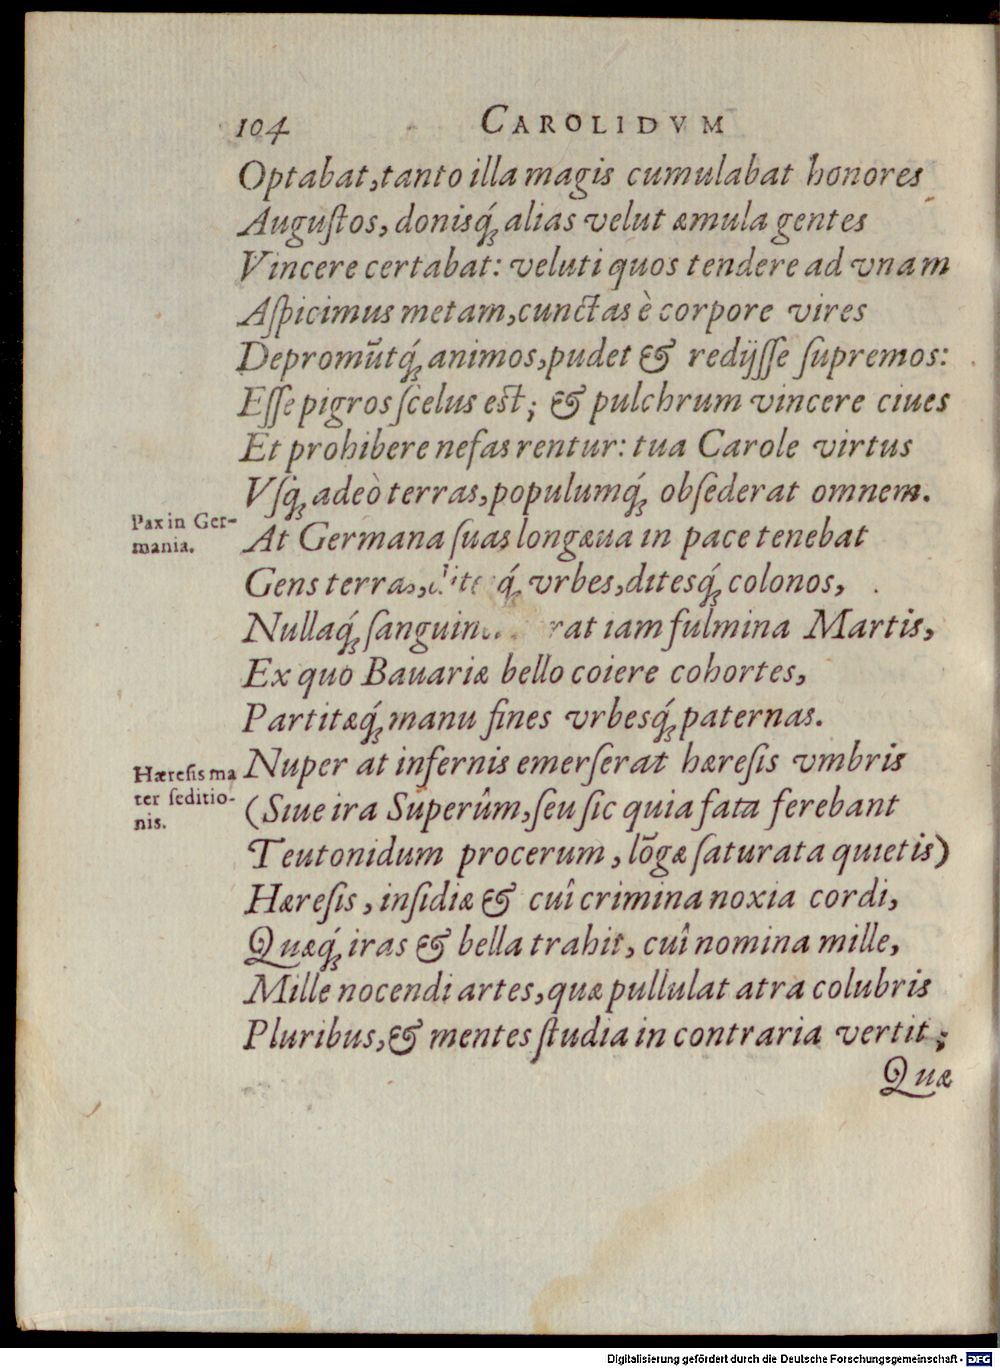 104 CAROLIDVM
Optabat, tanto illa magis cumulabat honores
Auguſtos, donisq́; alias velut æmula gentes
Vincere certabat: veluti quos tendere ad vnam
Aſpicimus metam, cunctas è corpore vires
Depromūtq́; animos, pudet & redijſſe ſupremos:
Eſſe pigros ſcelus est; & pulchrum vincere ciues
Et prohibere nefas rentur: tua Carole virtus
Vſq́; adeò terras, populumq́; obſederat omnem.
Pax in Ger-
mania.
At Germana ſuas longæua in pace tenebat
Gens terras, vrbes, ditesq́; colonos,
Nullaq́; iam fulmina Martis,
Ex quo Bauariæ bello coiere cohortes,
Partitæq́; manu fines vrbesq́; paternas.
Hæreſis ma
ter ſeditio-
nis.
Nuper at infernis emerſerat hæreſis vmbris
(Siue ira Superûm, ſeu ſic quia fata ferebant
Teutonidum procerum, lōgæ ſaturata quietis)
Hæreſis, inſidiæ & cuî crimina noxia cordi,
Quæq́; iras & bella trahit, cuî nomina mille,
Mille nocendi artes, quæ pullulat atra colubris
Pluribus, & mentes ſtudia in contraria vertit;
Quæ
Digitalisierung gefördert durch die Deutsche Forschungsgemeinschaft - DFG